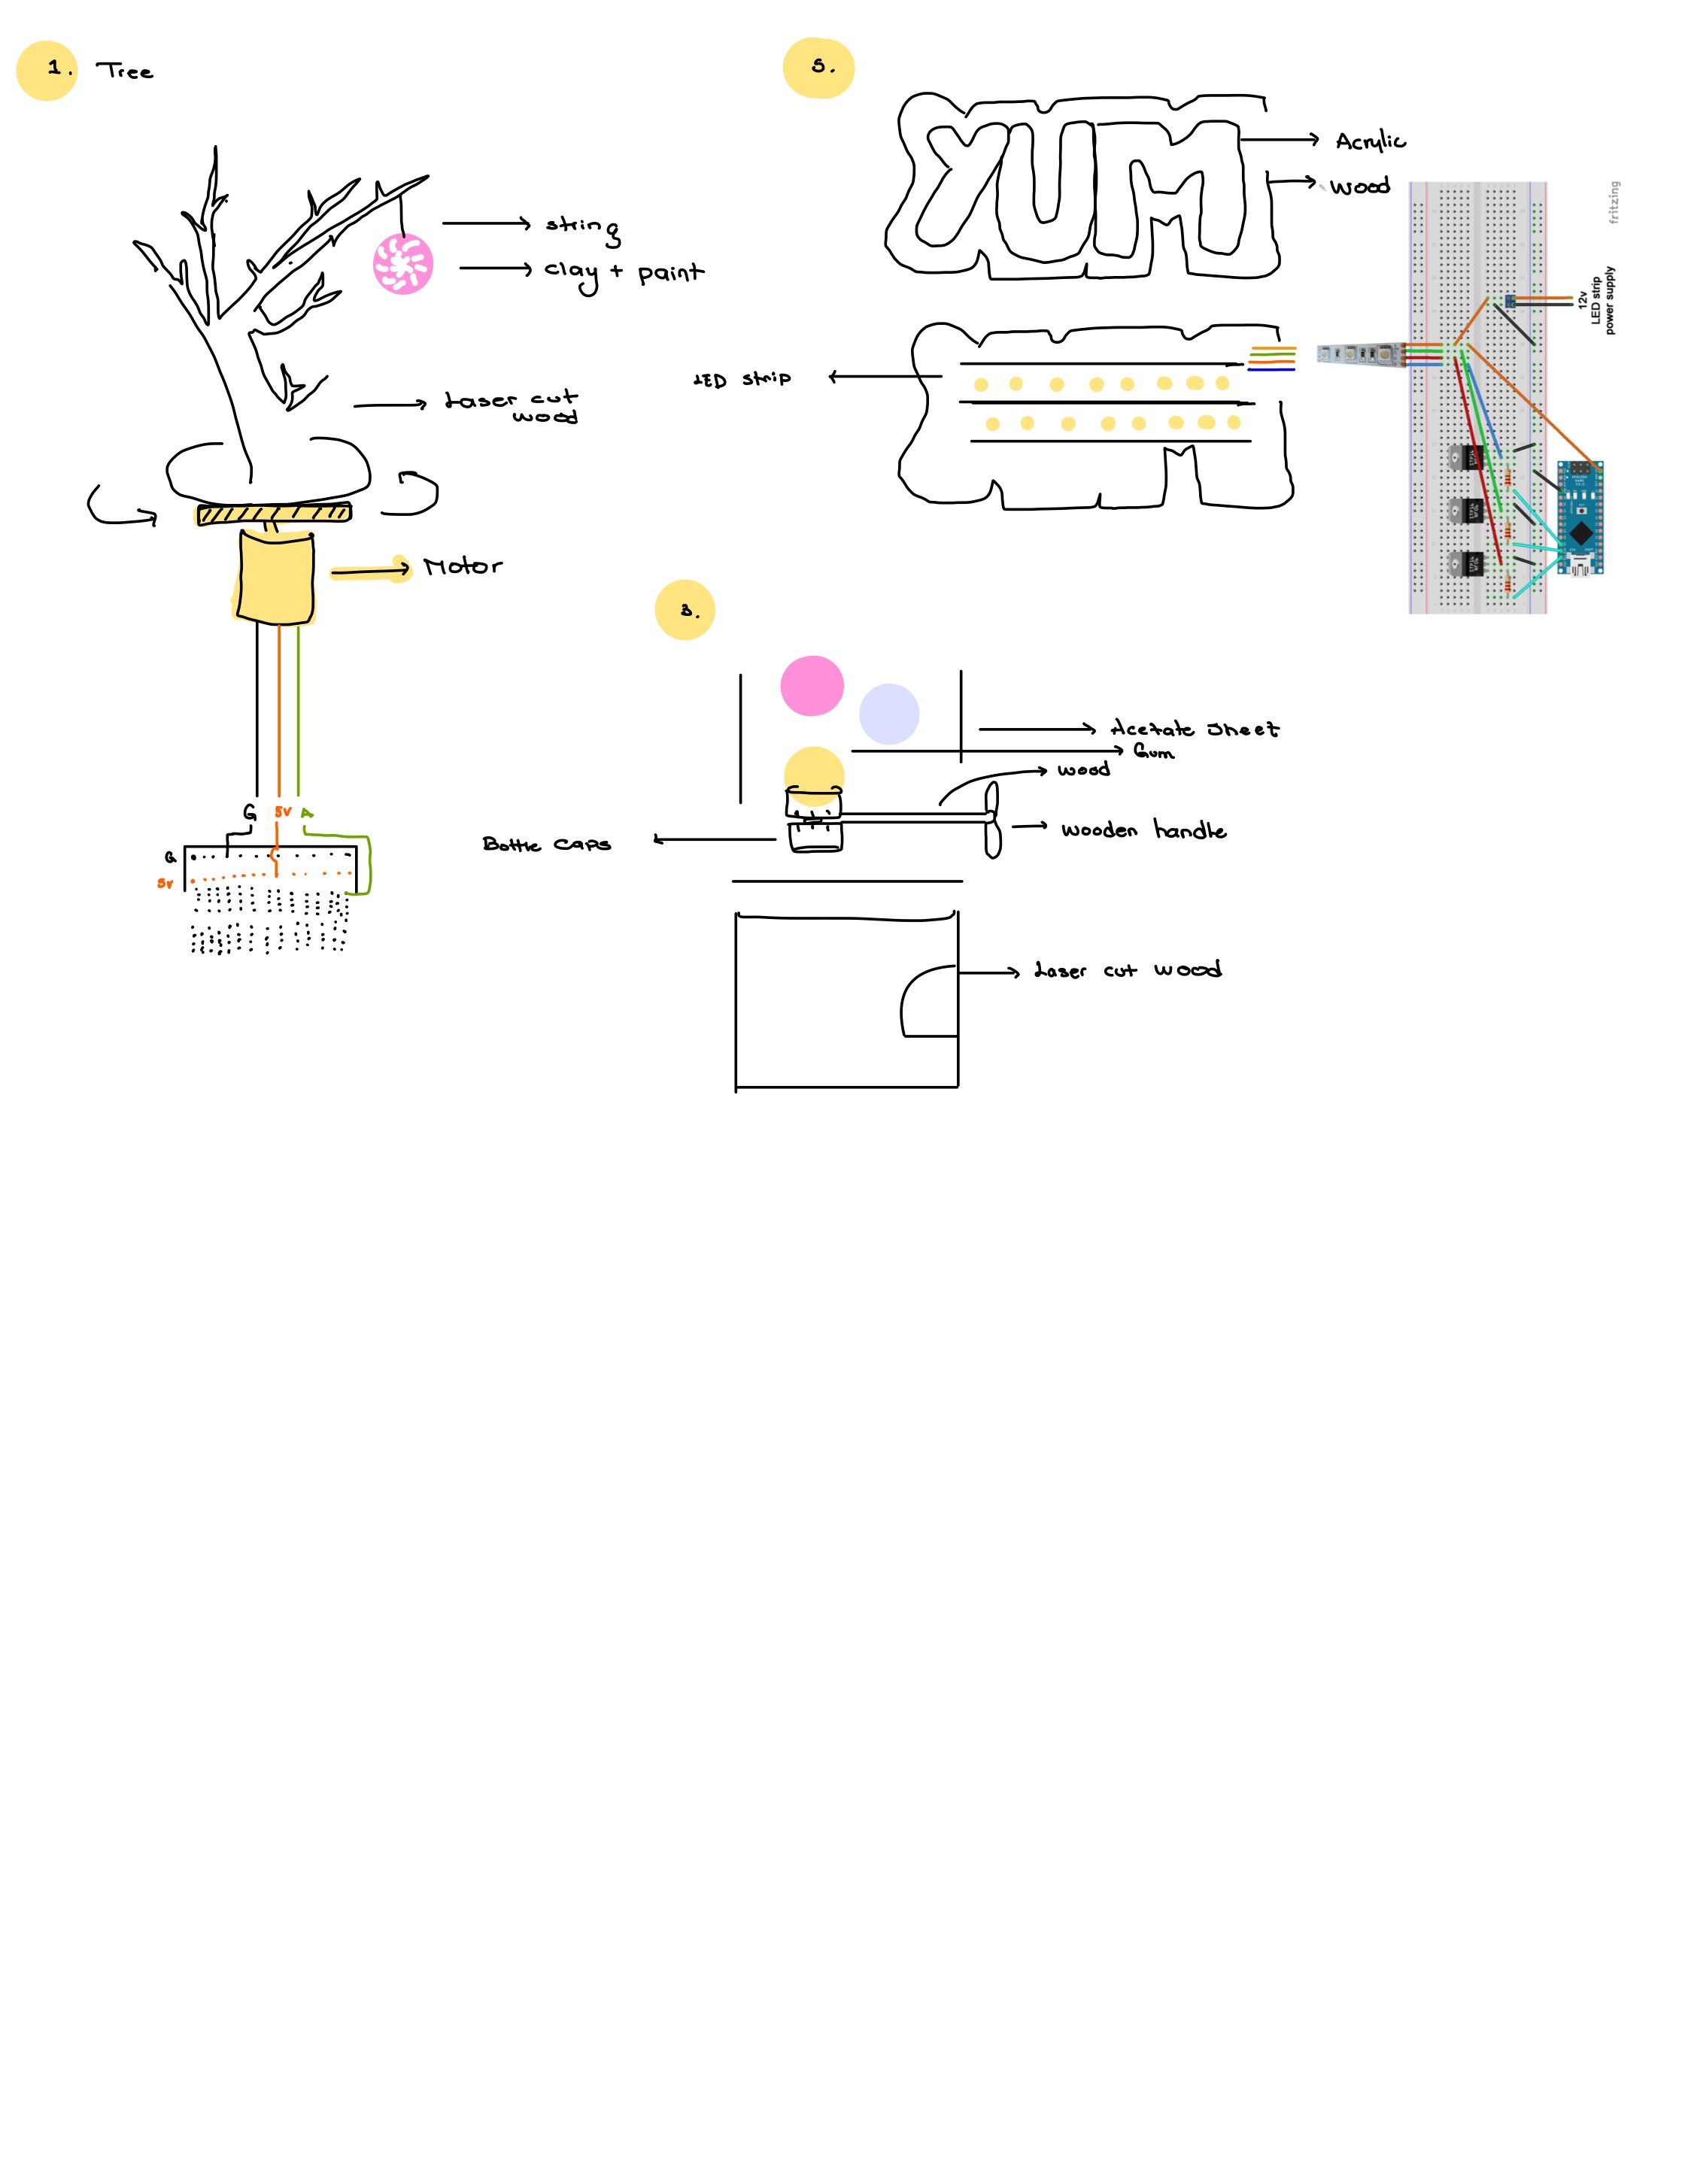 1. Tree
string
clay + paint
Laser cut
wood
Motor
G 5V A
G
5V
5.
YUM
Acrylic
Wood
LED strip
12v
LED strip
power supply
fritzing
3.
Acetate Sheet
Gum
wood
wooden handle
Bottle caps
Laser cut wood